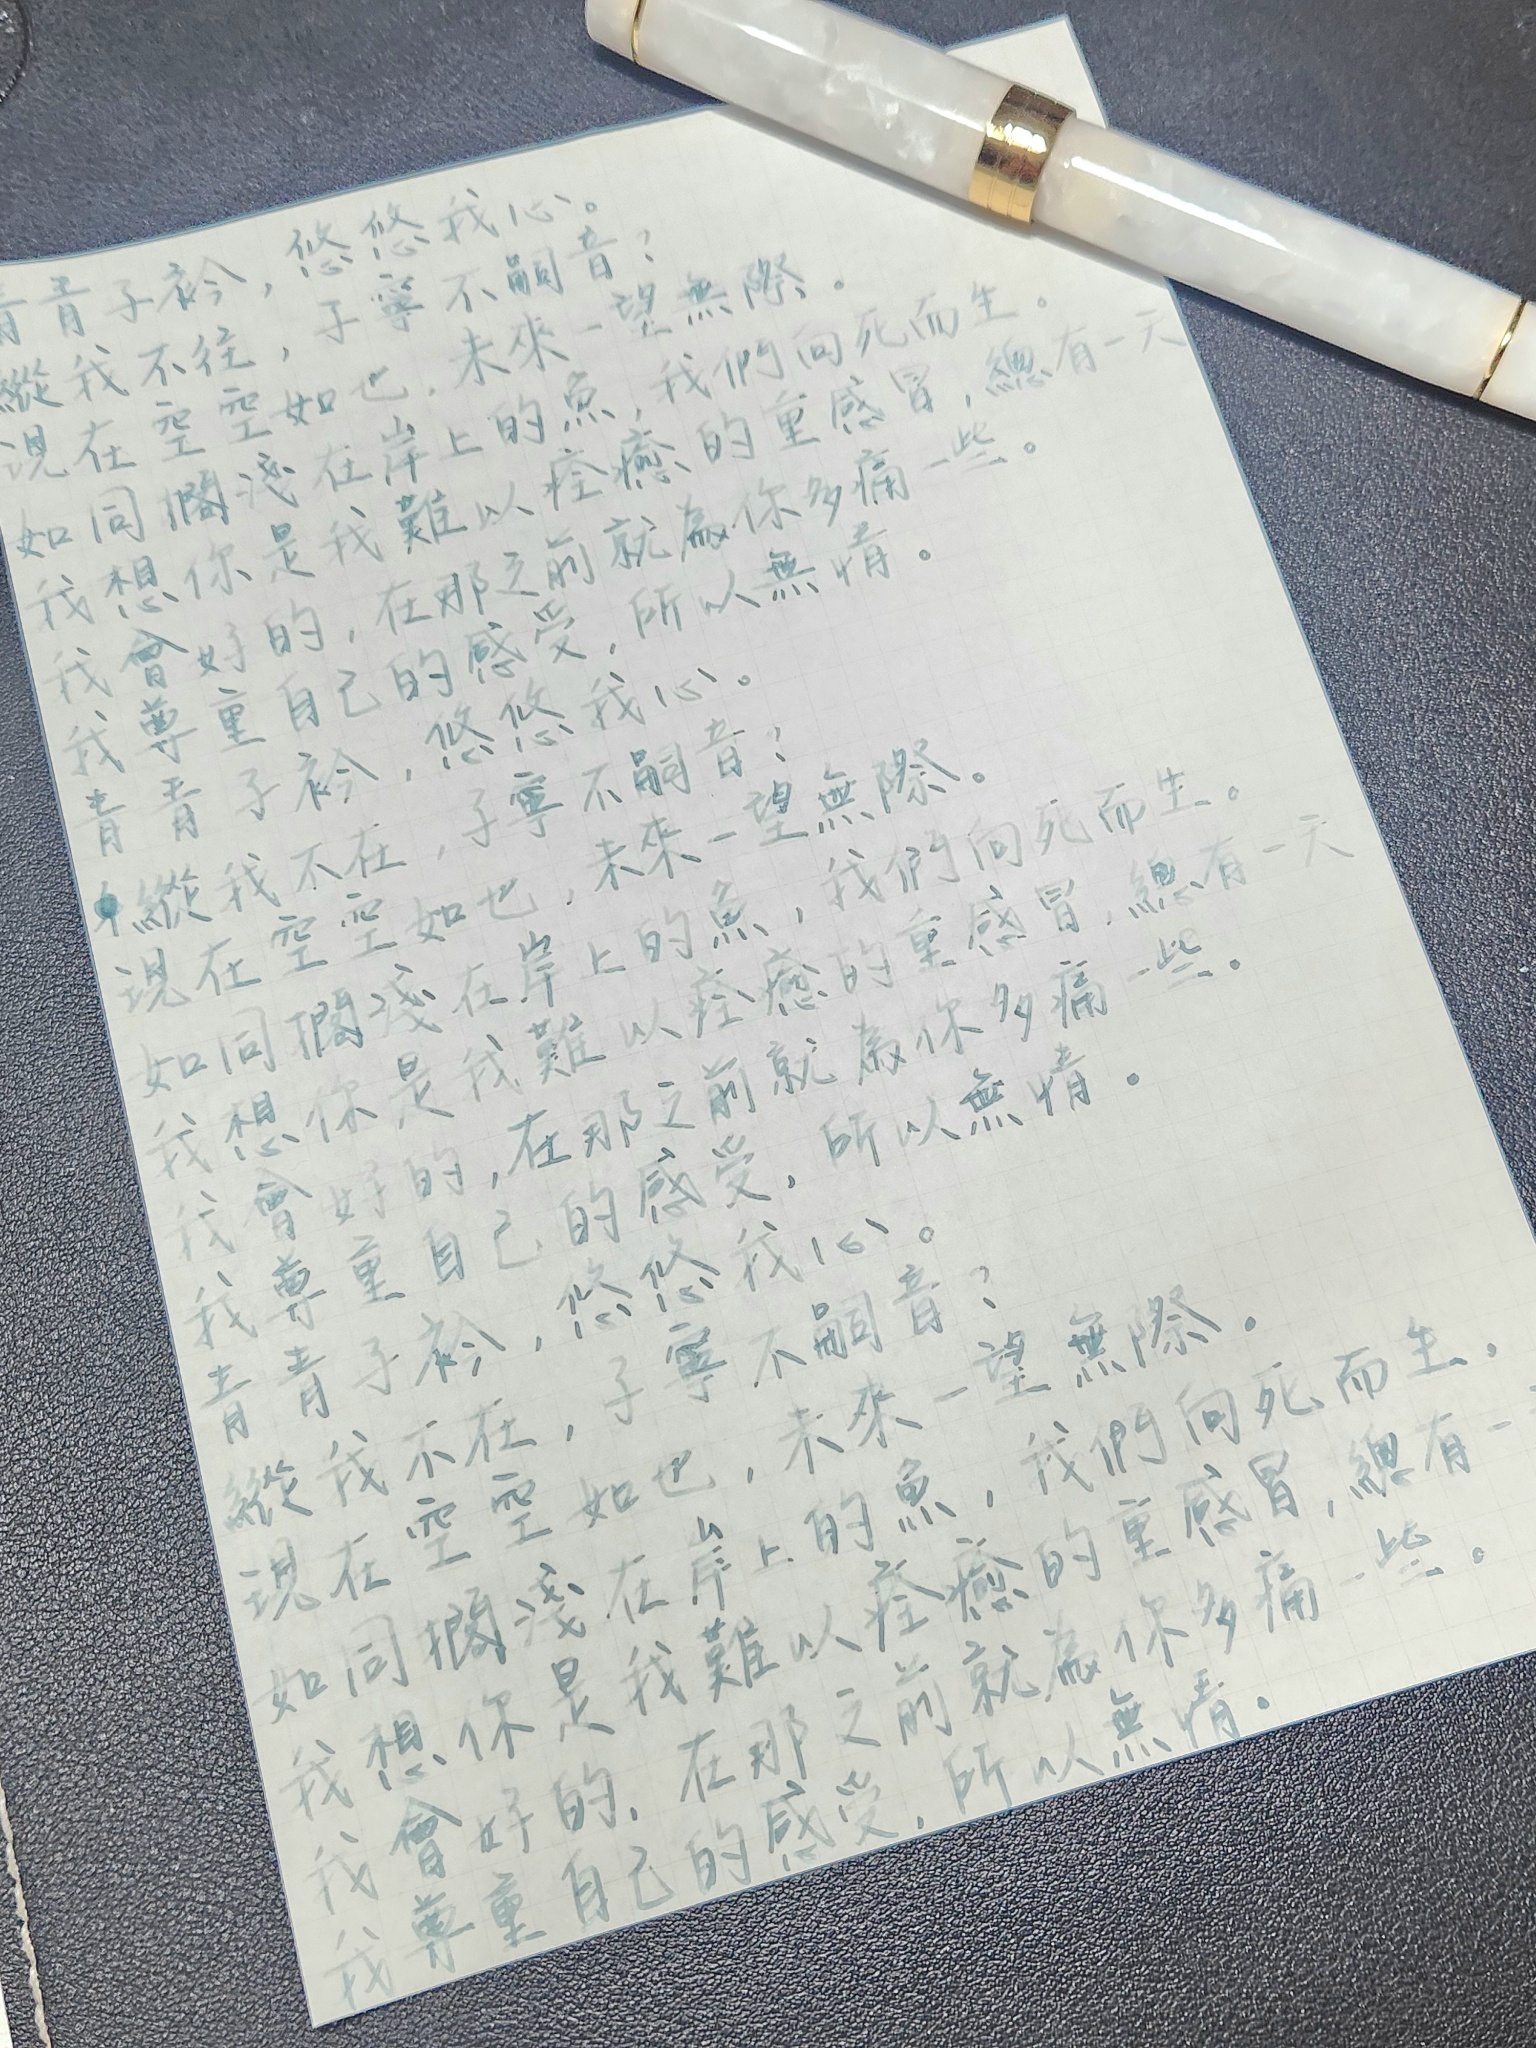 青青子衿，悠悠我心。
縱我不往，子寧不嗣音？
現在空空如也，未來一望無際。
如同擱淺在岸上的魚，我們向死而生。
我想你是我難以痊癒的重感冒，總有一天
我會好的，在那之前就為你多痛一些。
我尊重自己的感受，所以無情。
青青子衿，悠悠我心。
縱我不在，子寧不嗣音？
現在空空如也，未來一望無際。
如同擱淺在岸上的魚，我們向死而生。
我想你是我難以痊癒的重感冒，總有一天
我會好的，在那之前就為你多痛一些。
我尊重自己的感受，所以無情。
青青子衿，悠悠我心。
縱我不在，子寧不嗣音？
現在空空如也，未來一望無際。
如同擱淺在岸上的魚，我們向死而生。
我想你是我難以痊癒的重感冒，總有一
我會好的，在那之前就為你多痛一些。
我尊重自己的感受，所以無情。